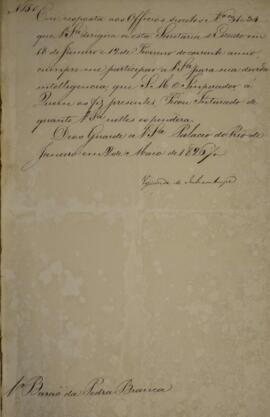 Em resposta aos Officios secretos Nos 31 e 34
que VSa derigio a esta Secretaria d'Estado em
18 de Janeiro e 12 de Fevereiro do corrente anno
cumpre-me participar a VSa para sua devida
intelligencia que S. M. O Imperador á
Quem os fiz presentes Ficou Inteirado de
quanto VSa nelles expendera.
Deos Guarde a VSa Palacio do Rio de
Janeiro em 2 de Maio de 1826
Visconde de Inhambupe
Barão da Pedra Branca